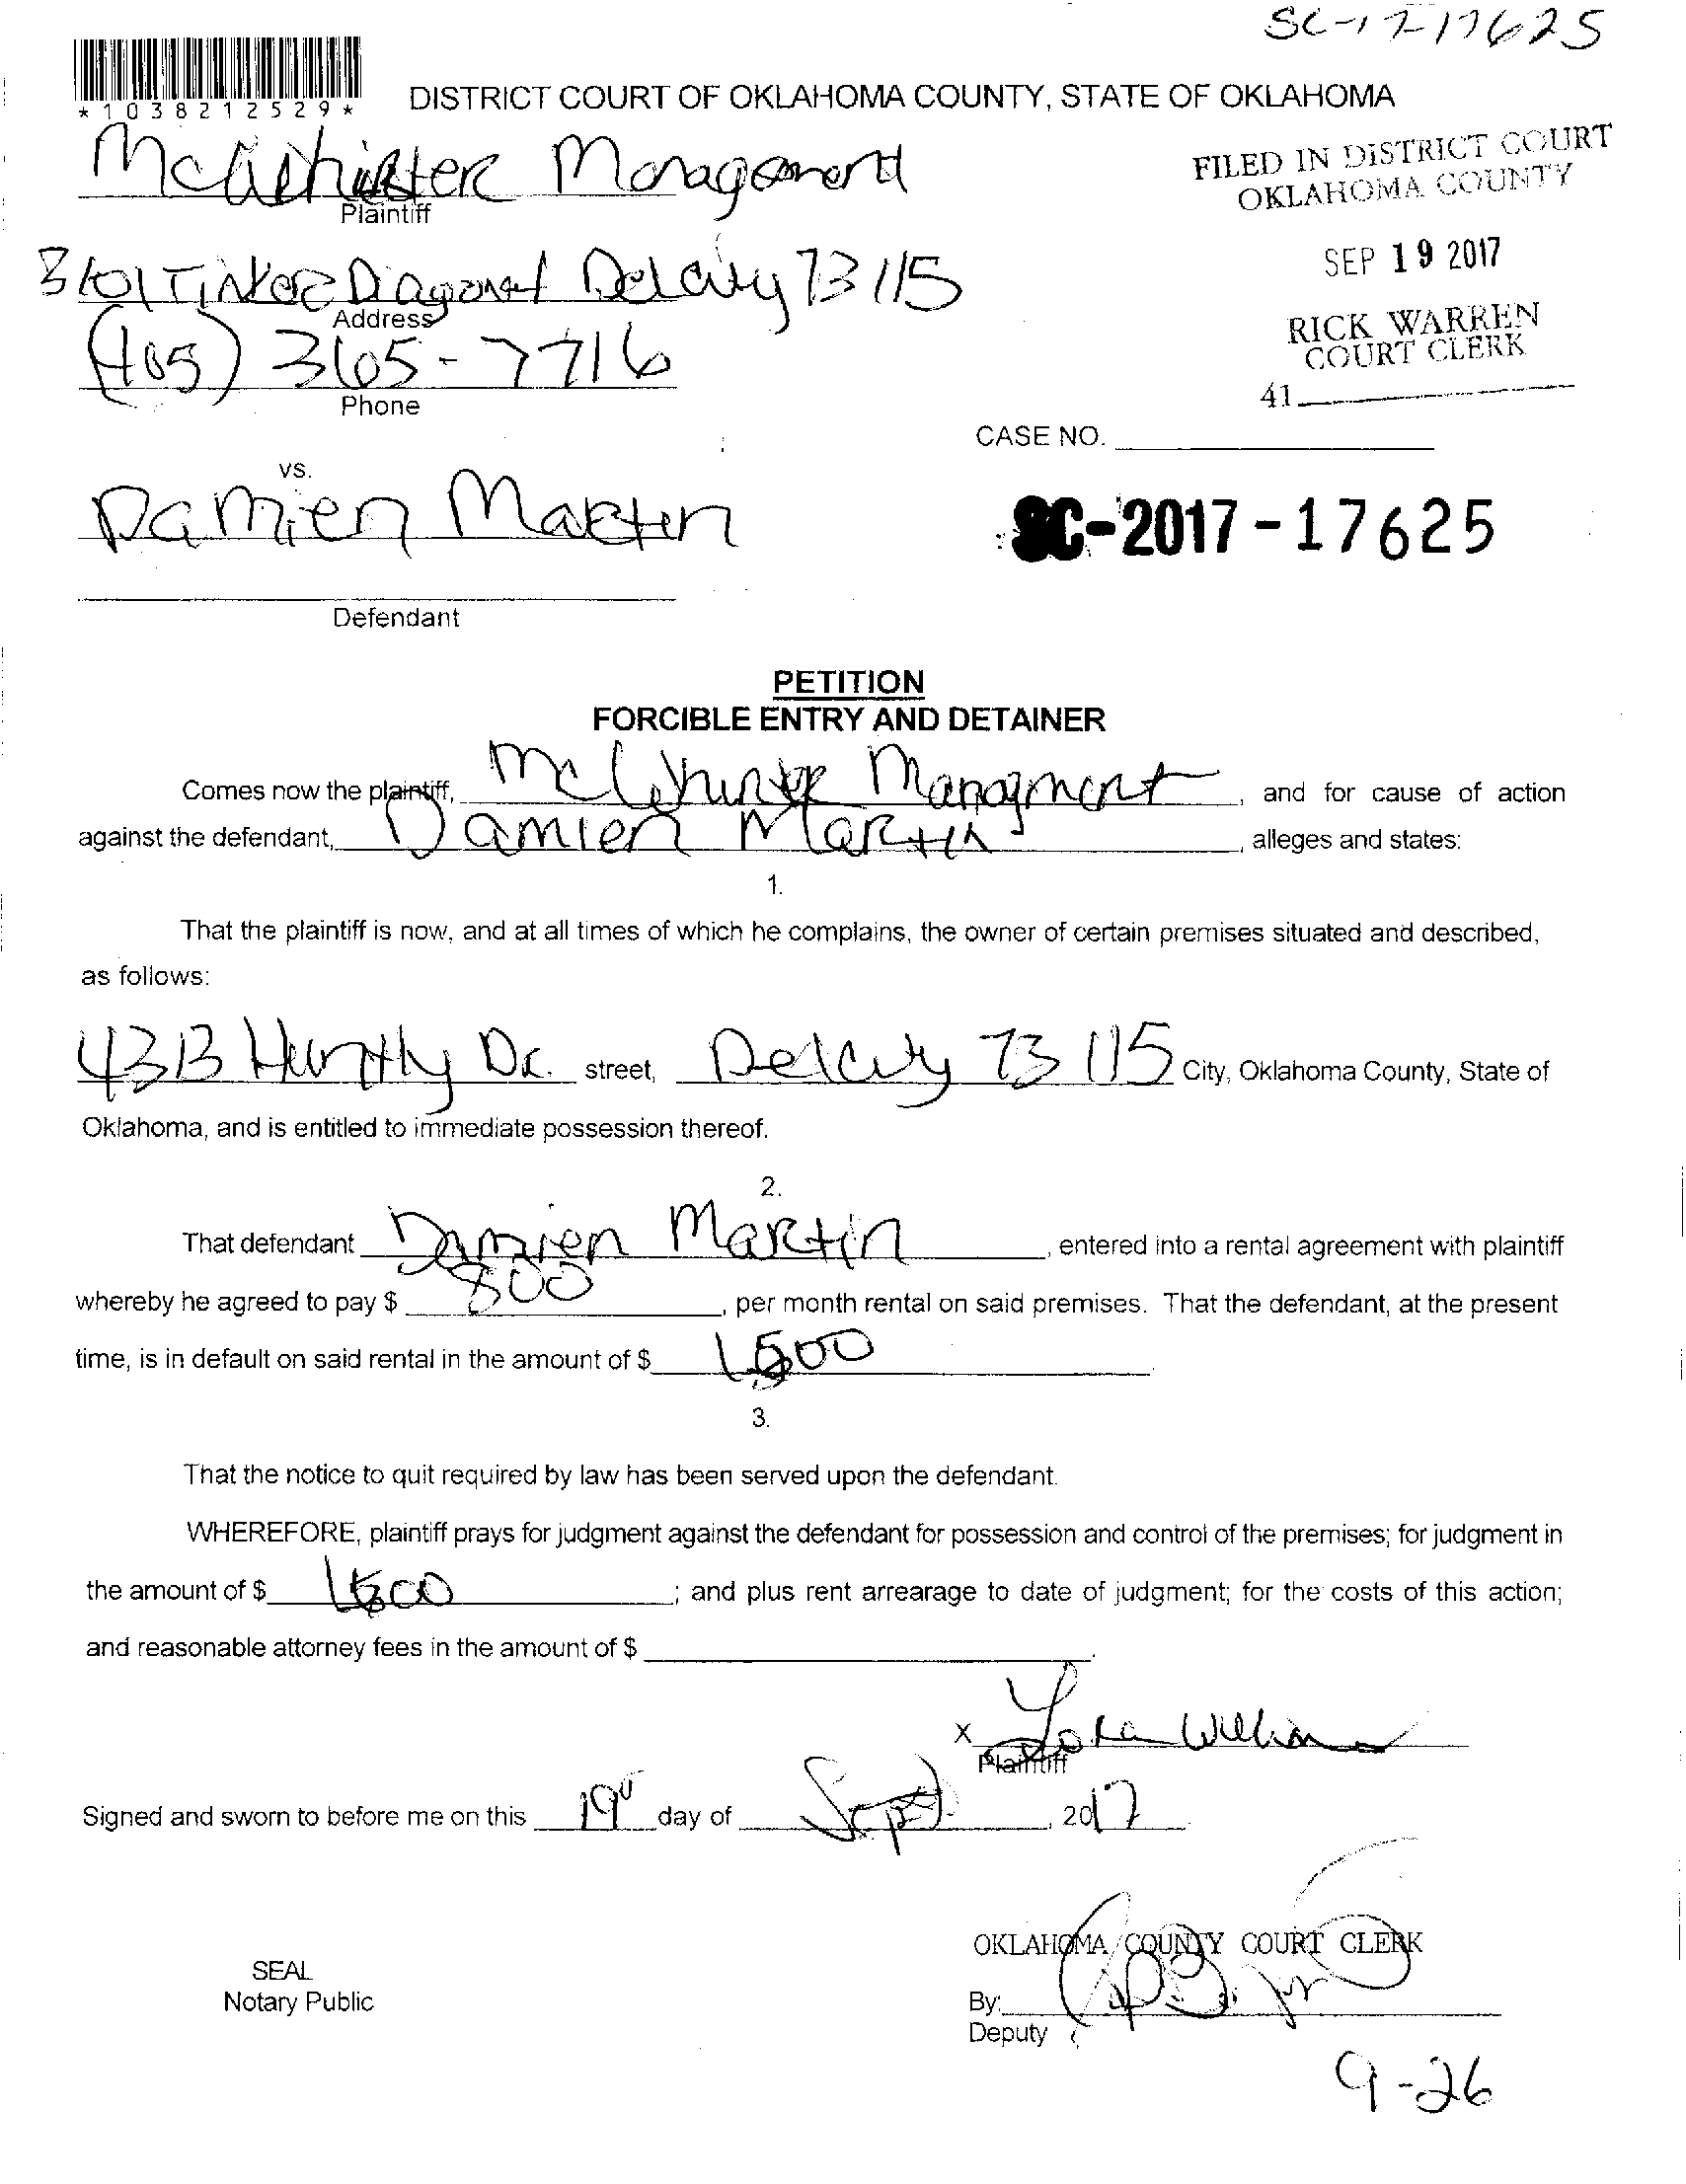 SC-17-17625
*1038212529*
DISTRICT COURT OF OKLAHOMA COUNTY, STATE OF OKLAHOMA
FILED IN DISTRICT COURT
OKLAHOMA COUNTY
Management
Plaintiff
SEP 19 2017
Tinker Diagonal Delcity 73115
Address
RICK WARREN
COURT CLERK
(405) 365-7716
Phone
41
CASE NO.
vs.
Damien Martin
SC-2017-17625
Defendant
PETITION
FORCIBLE ENTRY AND DETAINER
Comes now the plaintiff, Managment, and for cause of action
against the defendant, Damien Martin, alleges and states:
1.
That the plaintiff is now, and at all times of which he complains, the owner of certain premises situated and described,
as follows:
4313 Huntly Dr. street, Delcity 73115 City, Oklahoma County, State of
Oklahoma, and is entitled to immediate possession thereof.
2.
That defendant Damien Martin, entered into a rental agreement with plaintiff
whereby he agreed to pay $ 800, per month rental on said premises. That the defendant, at the present
time, is in default on said rental in the amount of $
3.
That the notice to quit required by law has been served upon the defendant.
WHEREFORE, plaintiff prays for judgment against the defendant for possession and control of the premises; for judgment in
the amount of $ ; and plus rent arrearage to date of judgment; for the costs of this action;
and reasonable attorney fees in the amount of $ .
X
Plaintiff
Signed and sworn to before me on this 19 day of Sept, 2017.
OKLAHOMA COUNTY COURT CLERK
SEAL
Notary Public
By:
Deputy
9-26